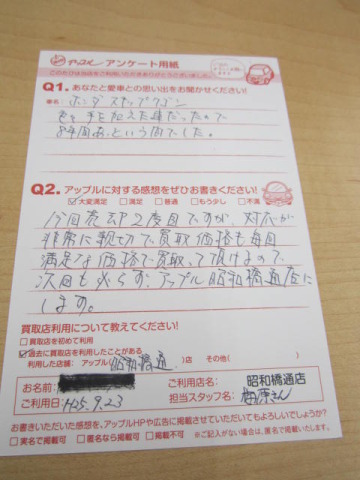 アップル アンケート用紙
このたびは当店をご利用いただきありがとうございました。
Q1. あなたと愛車との思い出をお聞かせください!
車名: ホンダ ステップワゴン
色々手を加えた車だったので
8年間あっという間でした。
Q2. アップルに対する感想をぜひお書きください!
☑大変満足 □満足 □普通 □もう少し □不満
今回売却2度目ですが、対応が
非常に親切で買取価格も毎回
満足な価格で買取って頂けるので
次回も必らず、アップル昭和橋通店に
します。
買取店利用について教えてください!
□買取店を初めて利用
☑過去に買取店を利用したことがある
利用した店舗: アップル( 昭和橋通 )店 その他( )
お名前:
ご利用店名: 昭和橋通店
ご利用日: H25.9.23
担当スタッフ名: 梅原さん
お書きいただいた感想を、アップルHPや広告に掲載させていただいてもよろしいでしょうか?
□実名で掲載可 □匿名なら掲載可 □掲載不可 ※ご記入がない場合は、匿名で掲載いたします。